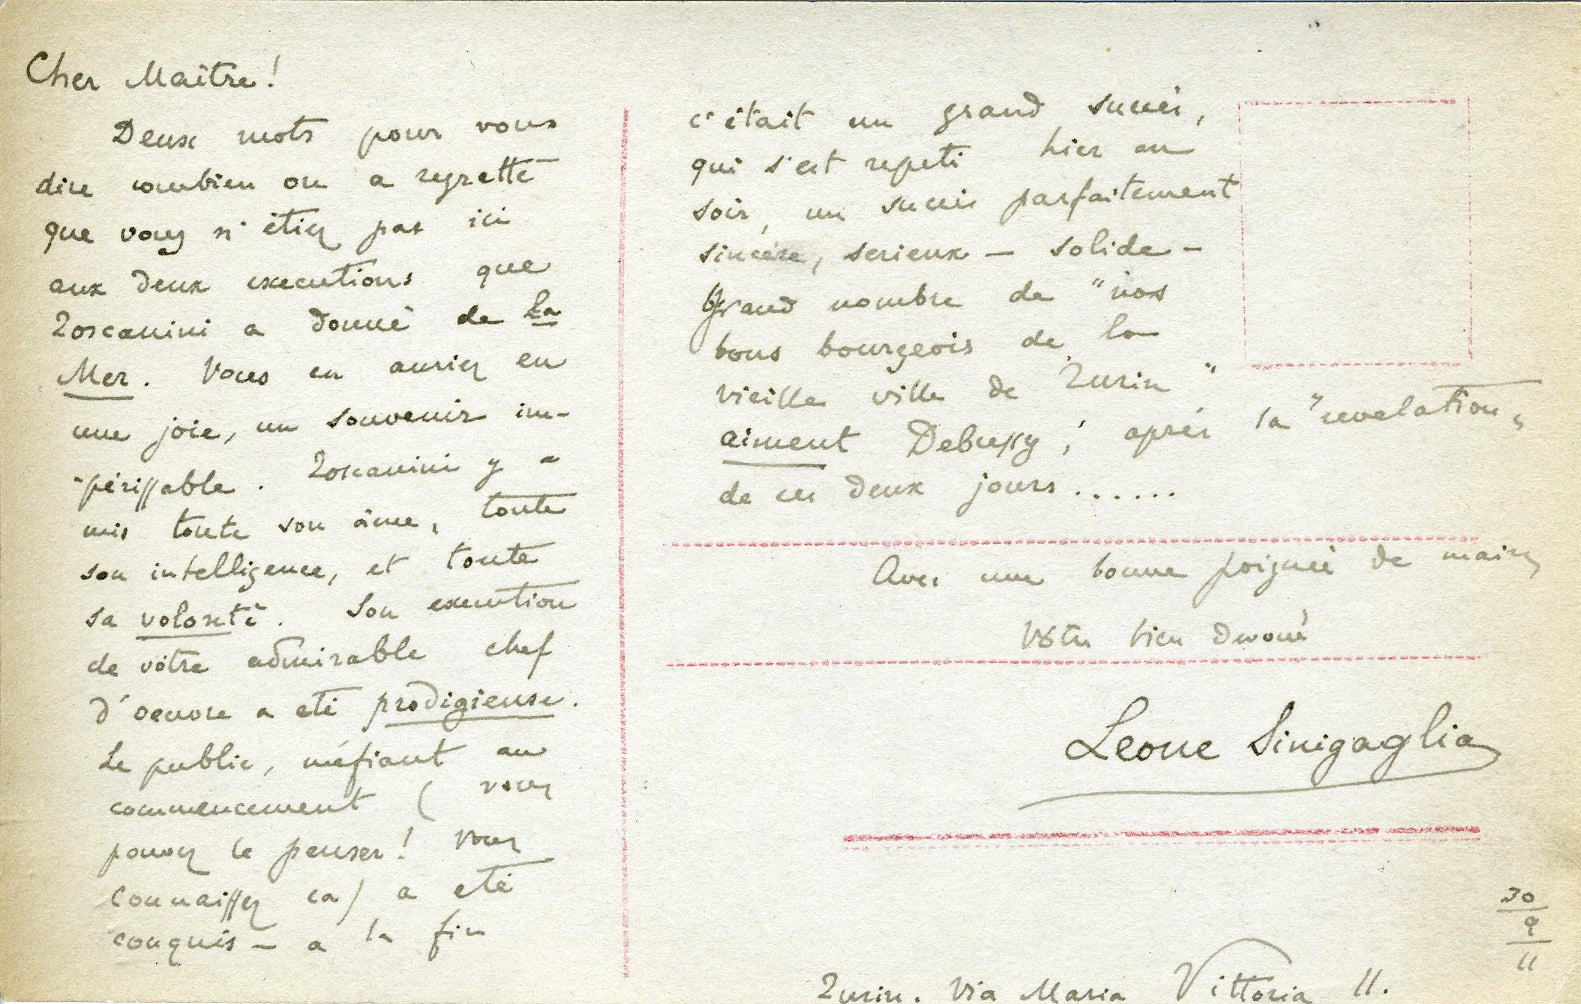 Cher Maître!
Deux mots pour vous
dire combien on a regretté
que vous n'étiez pas ici
aux deux executions que
Toscanini a donné de La
Mer. Vous en auriez eu
une joie, un souvenir im-
périssable. Toscanini y a
mis toute son âme, toute
son intelligence, et toute
sa volonté. Son execution
de vôtre admirable chef
d'oeuvre a eté prodigieuse.
Le public, méfiant au
commencement (vous
pouvez le penser! Vous
connaissez ca) a eté
conquis – a la fin
c'était un grand succès,
qui s'est repeté hier au
soir, un succès parfaitement
sincère, serieux – solide –
Grand nombre de "nos
bons bourgeois de la
vieille ville de Turin"
aiment Debussy, après la "revelation"
de ces deux jours......
Avec une bonne poignée de mains
Vôtre bien devoué
Leone Sinigaglia
30
9
11
Turin. Via Maria Vittoria 11.